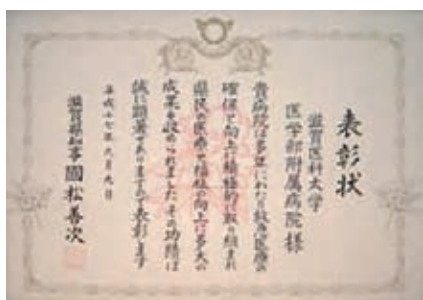 表彰状
滋賀医科大学
医学部附属病院 様
貴病院は多年にわたり救急医療の
確保と向上に積極的に取り組まれ
県民の医療と福祉の向上に多大の
成果を収められましたその功績は
誠に顕著でありますので表彰します
平成十七年九月九日
滋賀県知事 國松善次